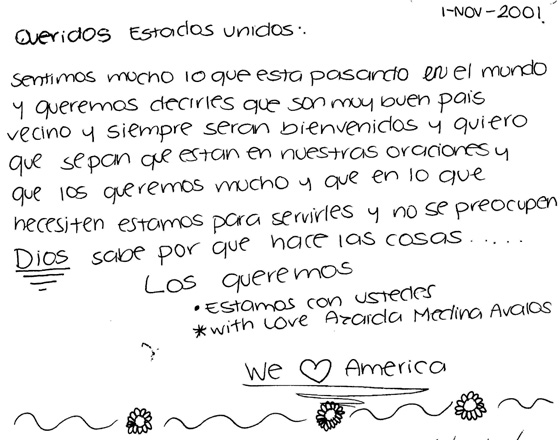 1-NOV-2001.
Queridos Estados unidos:.
Sentimos mucho lo que esta pasando en el mundo
y queremos decirles que son muy buen pais
vecino y siempre seran bienvenidos y quiero
que sepan que estan en nuestras oraciones y
que los queremos mucho y que en lo que
necesiten estamos para servirles y no se preocupen
Dios sabe por que hace las cosas.....
Los queremos
• Estamos con ustedes
* with Love Azarda Medina Avalos
We ♡ America